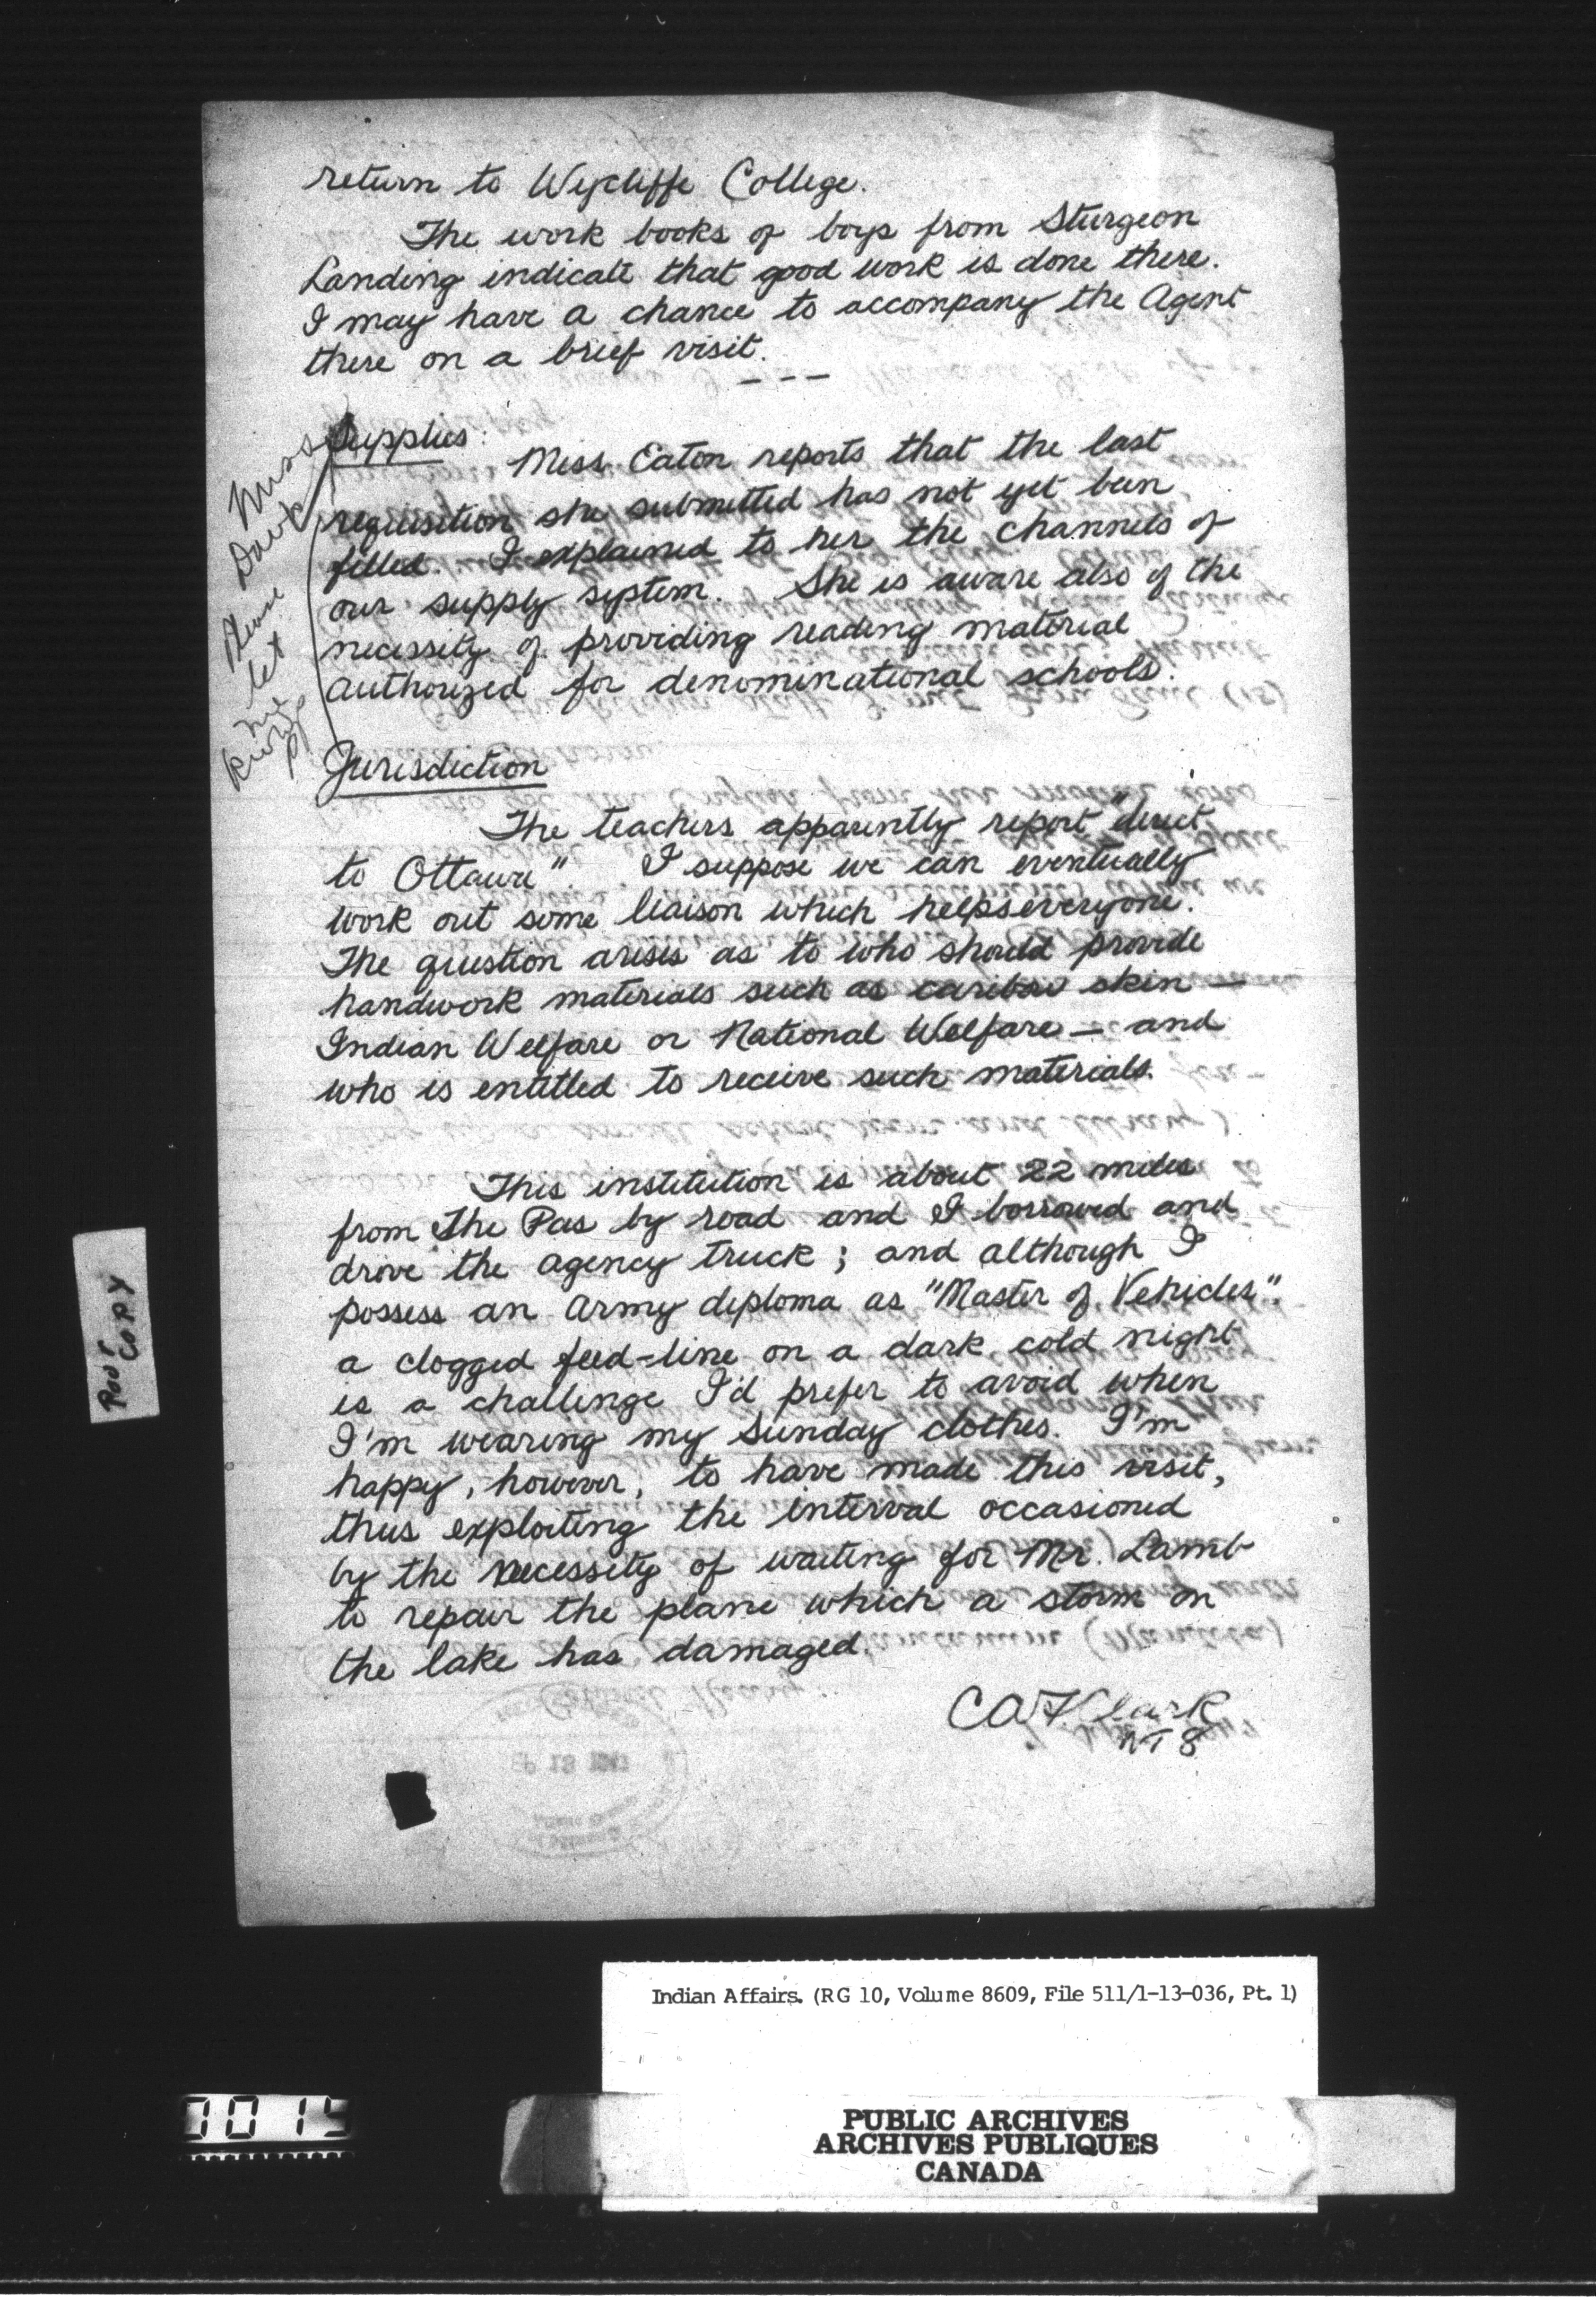 return to Wycliffe College.
The work books of boys from Sturgeon
Landing indicate that good work is done there.
I may have a chance to accompany the Agent
there on a brief visit.
- - -
Supplies:
Miss Eaton reports that the last
requisition she submitted has not yet been
filled. I explained to her the channels of
our supply system. She is aware also of the
necessity of providing reading material
authorized for denominational schools.
Miss
Please
let
me
know
Jurisdiction
The teachers apparently report "direct
to Ottawa". I suppose we can eventually
work out some liaison which helps everyone.
The question arises as to who should provide
handwork materials such as caribou skin —
Indian Welfare or National Welfare — and
who is entitled to receive such materials.
This institution is about 22 miles
from The Pas by road and I borrowed and
drove the agency truck; and although I
possess an army diploma as "Master of Vehicles".
a clogged feed-line on a dark cold night
is a challenge I'd prefer to avoid when
I'm wearing my Sunday clothes. I'm
happy, however, to have made this visit,
thus exploiting the interval occasioned
by the necessity of waiting for Mr. Lamb
to repair the plane which a storm on
the lake has damaged.
CAF Clark
POOR
COPY
Indian Affairs. (RG 10, Volume 8609, File 511/1-13-036, Pt. 1)
PUBLIC ARCHIVES
ARCHIVES PUBLIQUES
CANADA